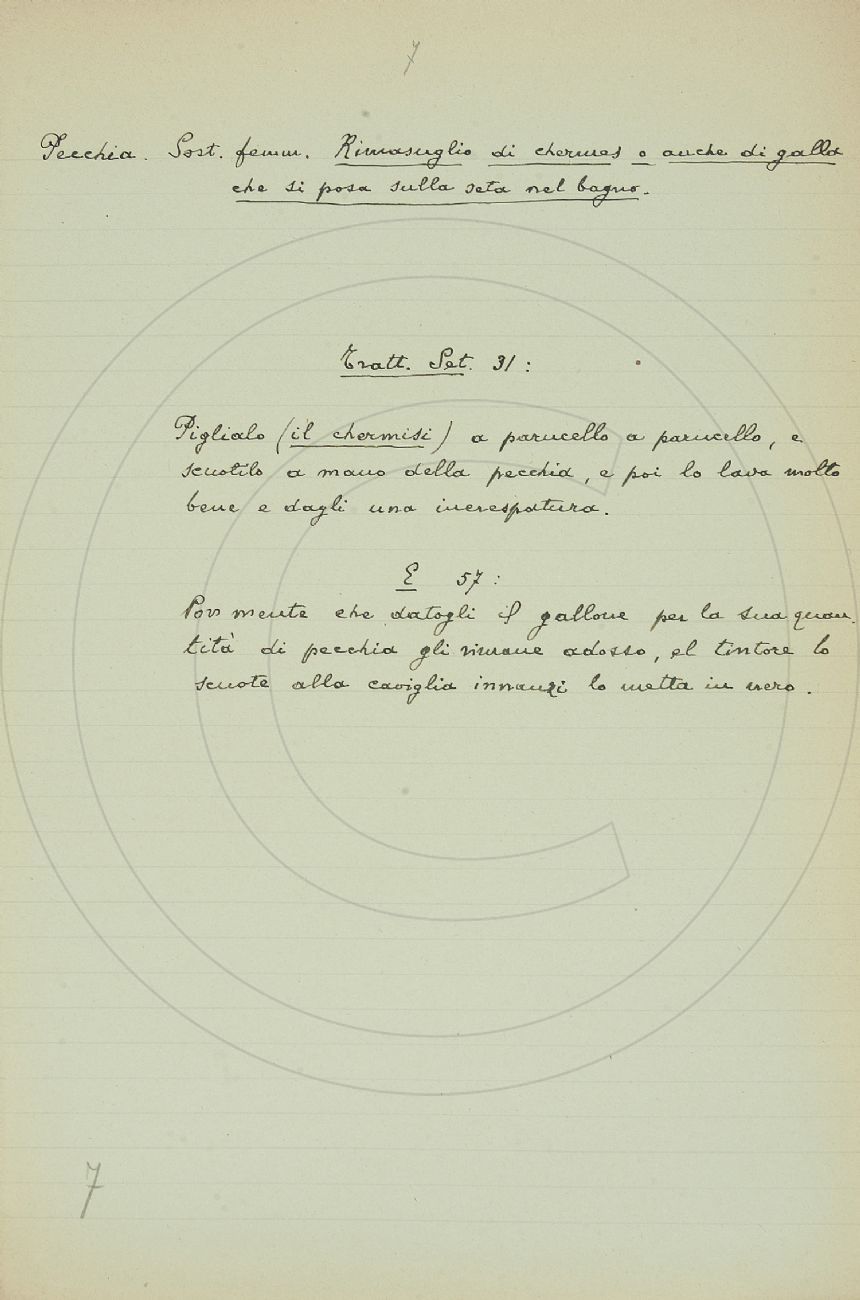 7
Pecchia. Sost. femm. Rimasuglio di chermes o anche di galla
che si posa sulla seta nel bagno.
Tratt. Set. 31:
Piglialo (il chermisi) a parucello a parucello, e
scuotilo a mano della pecchia, e poi lo lava molto
bene e dagli una increspatura.
E 57:
Pon mente che datogli il gallone per la sua quan-
tità di pecchia gli rimane adosso, el tintore lo
scuote alla caviglia innanzi lo metta in nero.
7